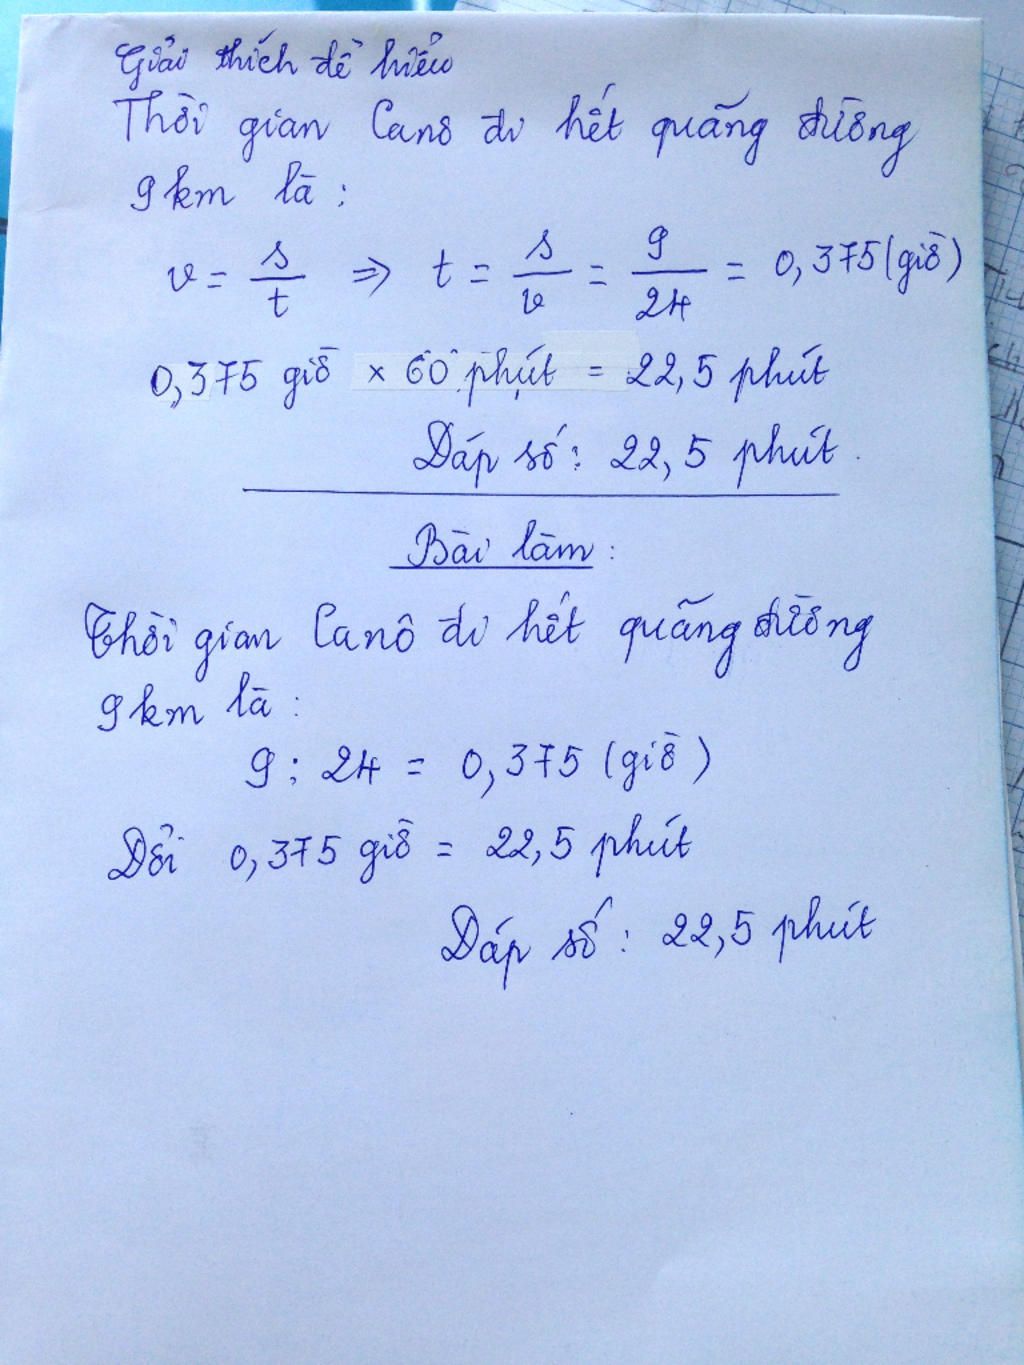 Giải thích dễ hiểu
Thời gian Canô đi hết quãng đường
9km là :
v = s/t => t = s/v = 9/24 = 0,375 (giờ)
0,375 giờ x 60 phút = 22,5 phút
Đáp số : 22,5 phút.
Bài làm :
Thời gian Canô đi hết quãng đường
9km là :
9 : 24 = 0,375 (giờ)
Đổi 0,375 giờ = 22,5 phút
Đáp số : 22,5 phút